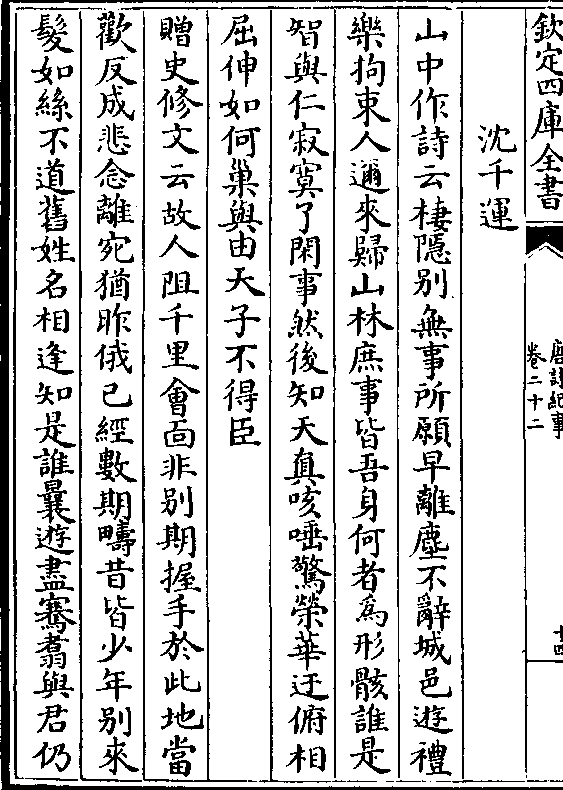 欽定四庫全書
唐詩紀事
卷二十二
十四
沈千運
山中作詩云棲隱别無事所願早離塵不辭城邑遊禮
樂拘束人邇來歸山林庶事皆吾身何者為形骸誰是
智與仁寂寞了閑事然後知天真咳唾驚榮華迂俯相
屈伸如何巢與由天子不得臣
贈史修文云故人阻千里會面非别期握手於此地當
歡反成悲念離宛猶昨俄已經數期疇昔皆少年别來
髮如絲不道舊姓名相逢知是誰曩遊盡騫翥與君仍